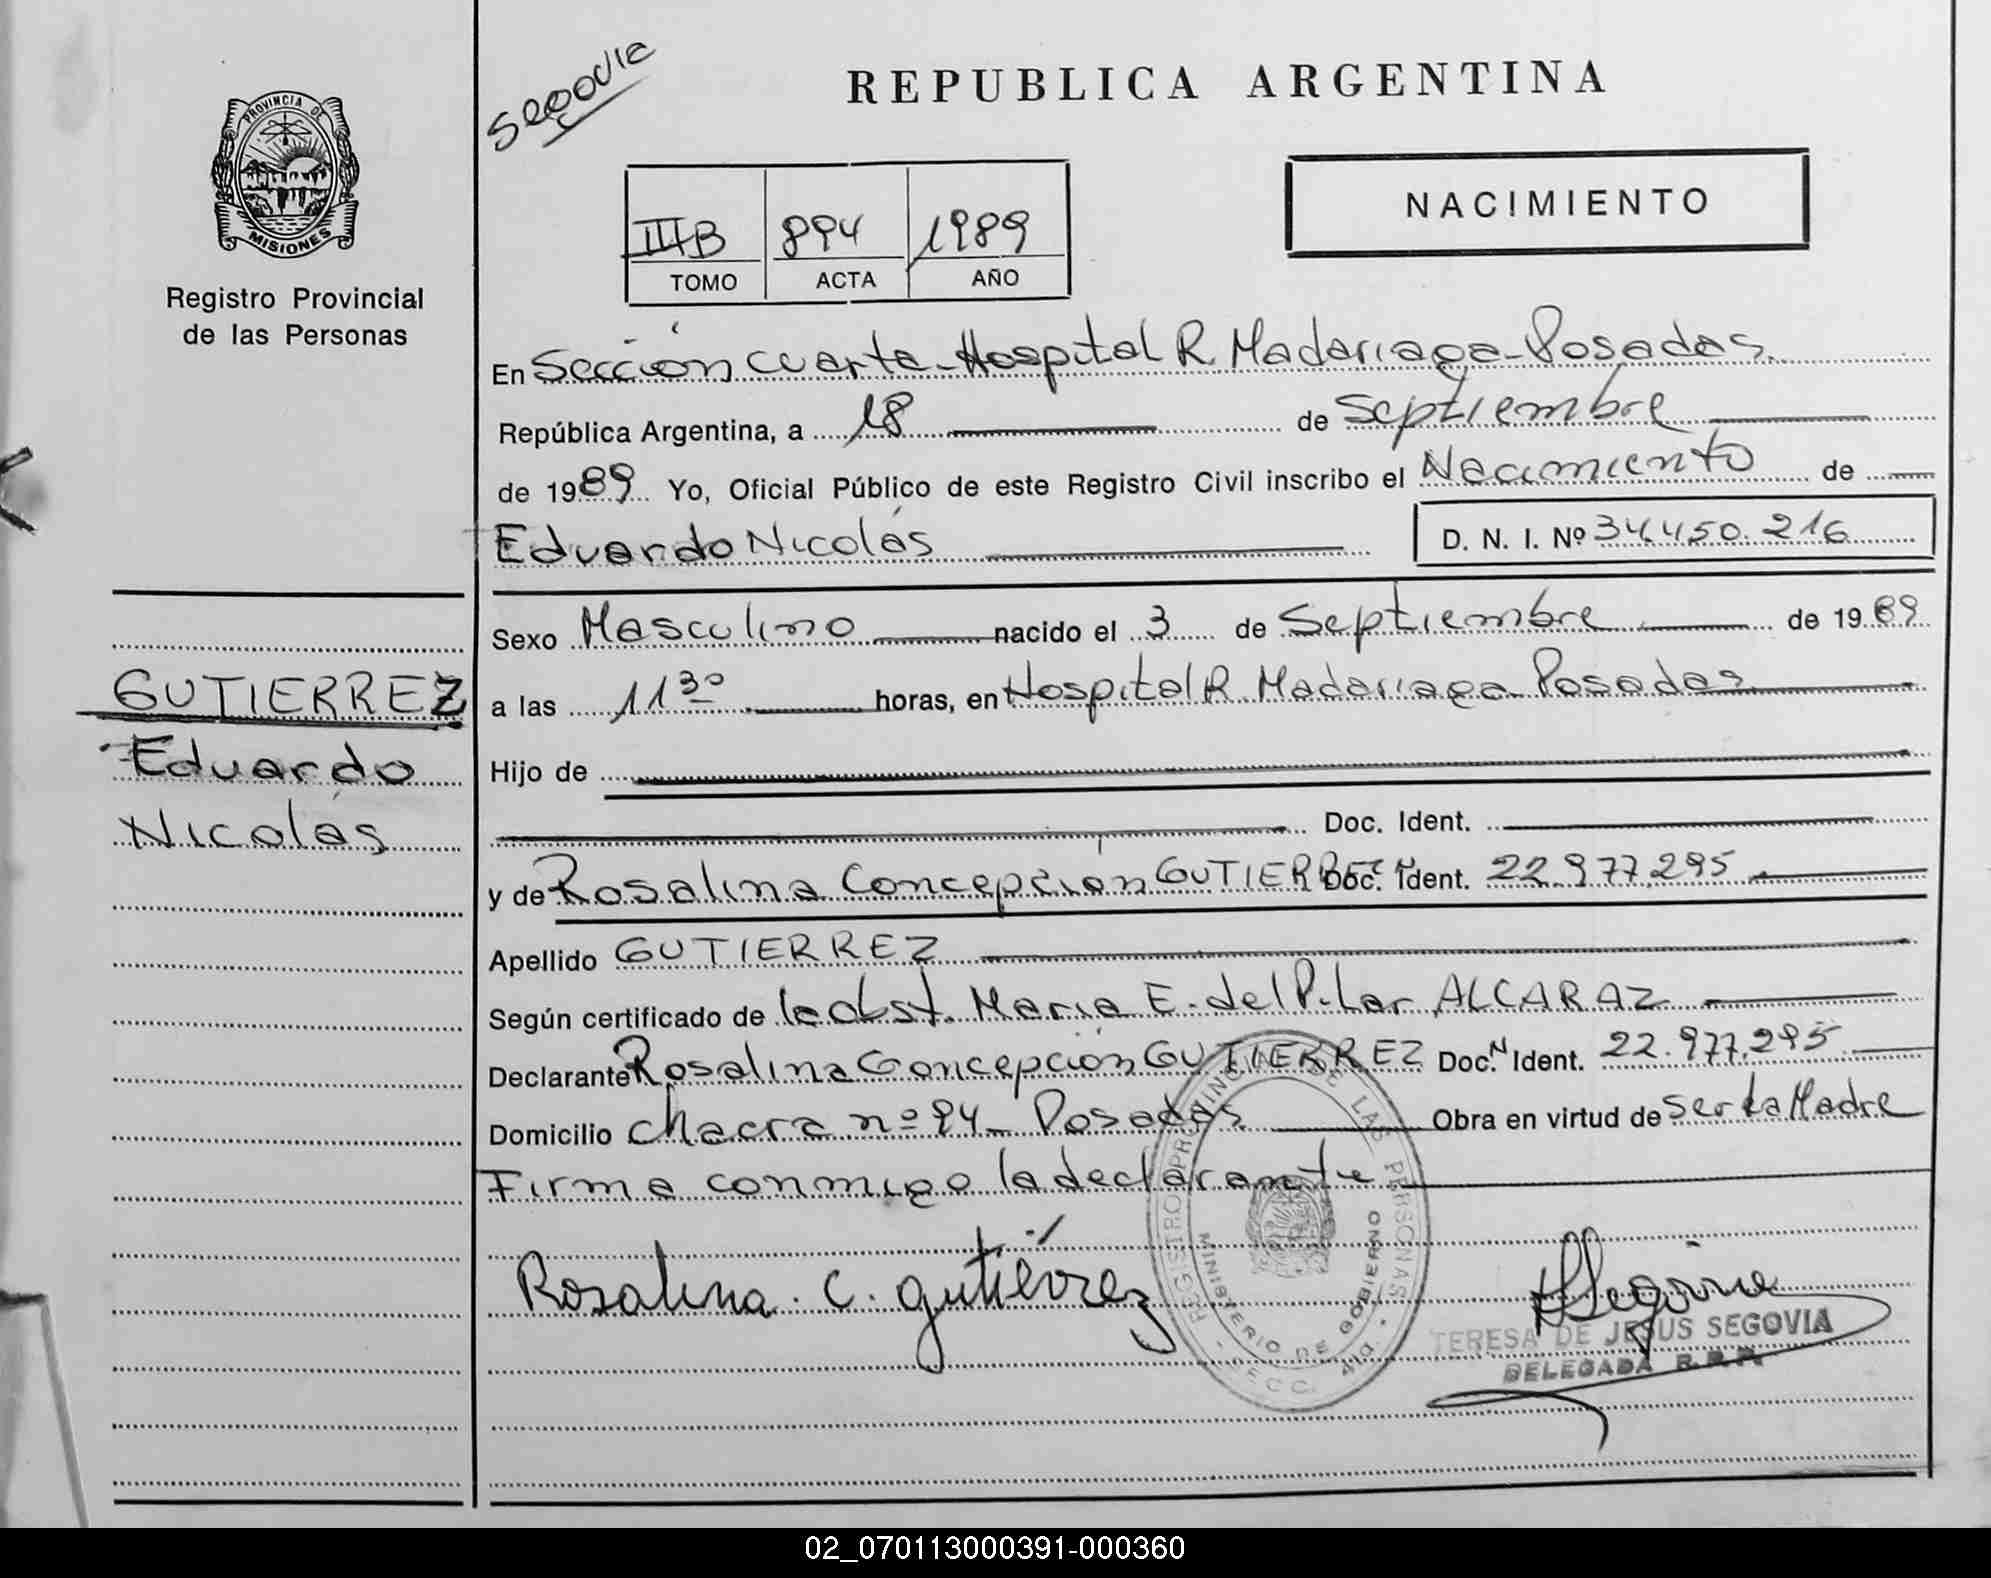 PROVINCIA DE
MISIONES
Registro Provincial
de las Personas
GUTIERREZ
Eduardo
Nicolás
Segovia
REPUBLICA ARGENTINA
NACIMIENTO
III B 894 1989
TOMO ACTA AÑO
En Sección Cuarta - Hospital R. Madariaga - Posadas
República Argentina, a 18 de Septiembre
de 1989 Yo, Oficial Público de este Registro Civil inscribo el Nacimiento de
Eduardo Nicolás D. N. I. Nº 34.450.216
Sexo Masculino nacido el 3 de Septiembre de 1989
a las 11 30 horas, en Hospital R. Madariaga - Posadas
Hijo de
Doc. Ident.
y de Rosalina Concepción GUTIERREZ Doc. Ident. 22.977.295
Apellido GUTIERREZ
Según certificado de la obst. María E. del Pilar ALCARAZ
Declarante Rosalina Concepción GUTIERREZ Doc. N Ident. 22.977.295
Domicilio Chacra nº 94 - Posadas Obra en virtud de ser la Madre
Firma conmigo la declarante
Rosalina. C. gutiérrez
REGISTRO PROVINCIAL DE LAS PERSONAS
MINISTERIO DE GOBIERNO
SECC. 4ta.
Segovia
TERESA DE JESUS SEGOVIA
DELEGADA R.P.P.
02_070113000391-000360